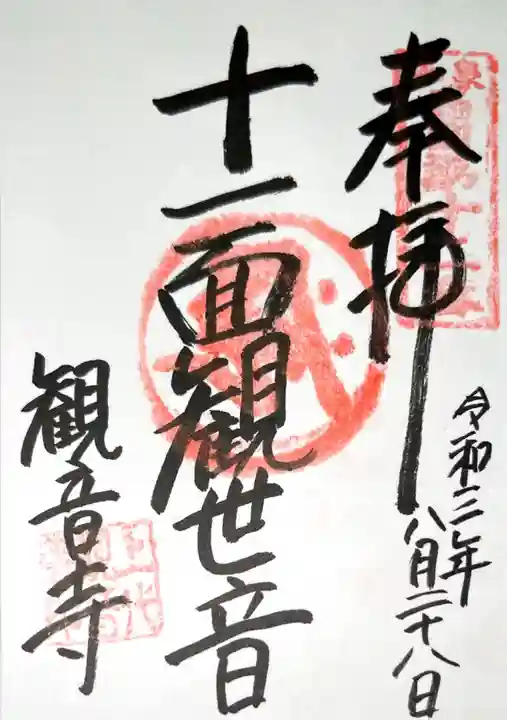 奉拝
令和三年
八月二十八日
十一面観世音
観音寺